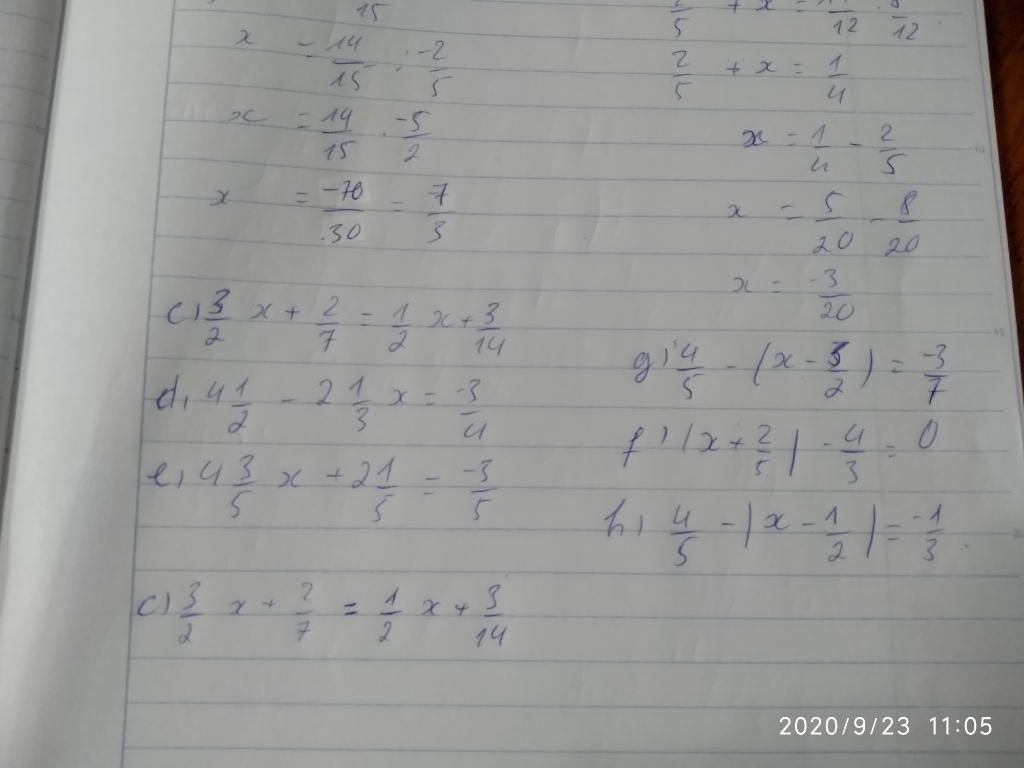 15
x = 14/15 : -2/5
x = 14/15 . -5/2
x = -70/30 = 7/3
c) 3/2 x + 2/7 = 1/2 x + 3/14
d, 4 1/2 - 2 1/3 x = -3/4
e, 4 3/5 x + 2 1/5 = -3/5
c) 3/2 x + 2/7 = 1/2 x + 3/14
2/5 + x = 1/4
x = 1/4 - 2/5
x = 5/20 - 8/20
x = -3/20
g) 4/5 - (x - 3/2) = -3/7
f) |x + 2/5| - 4/3 = 0
h, 4/5 - |x - 1/2| = -1/3.
2020/9/23 11:05